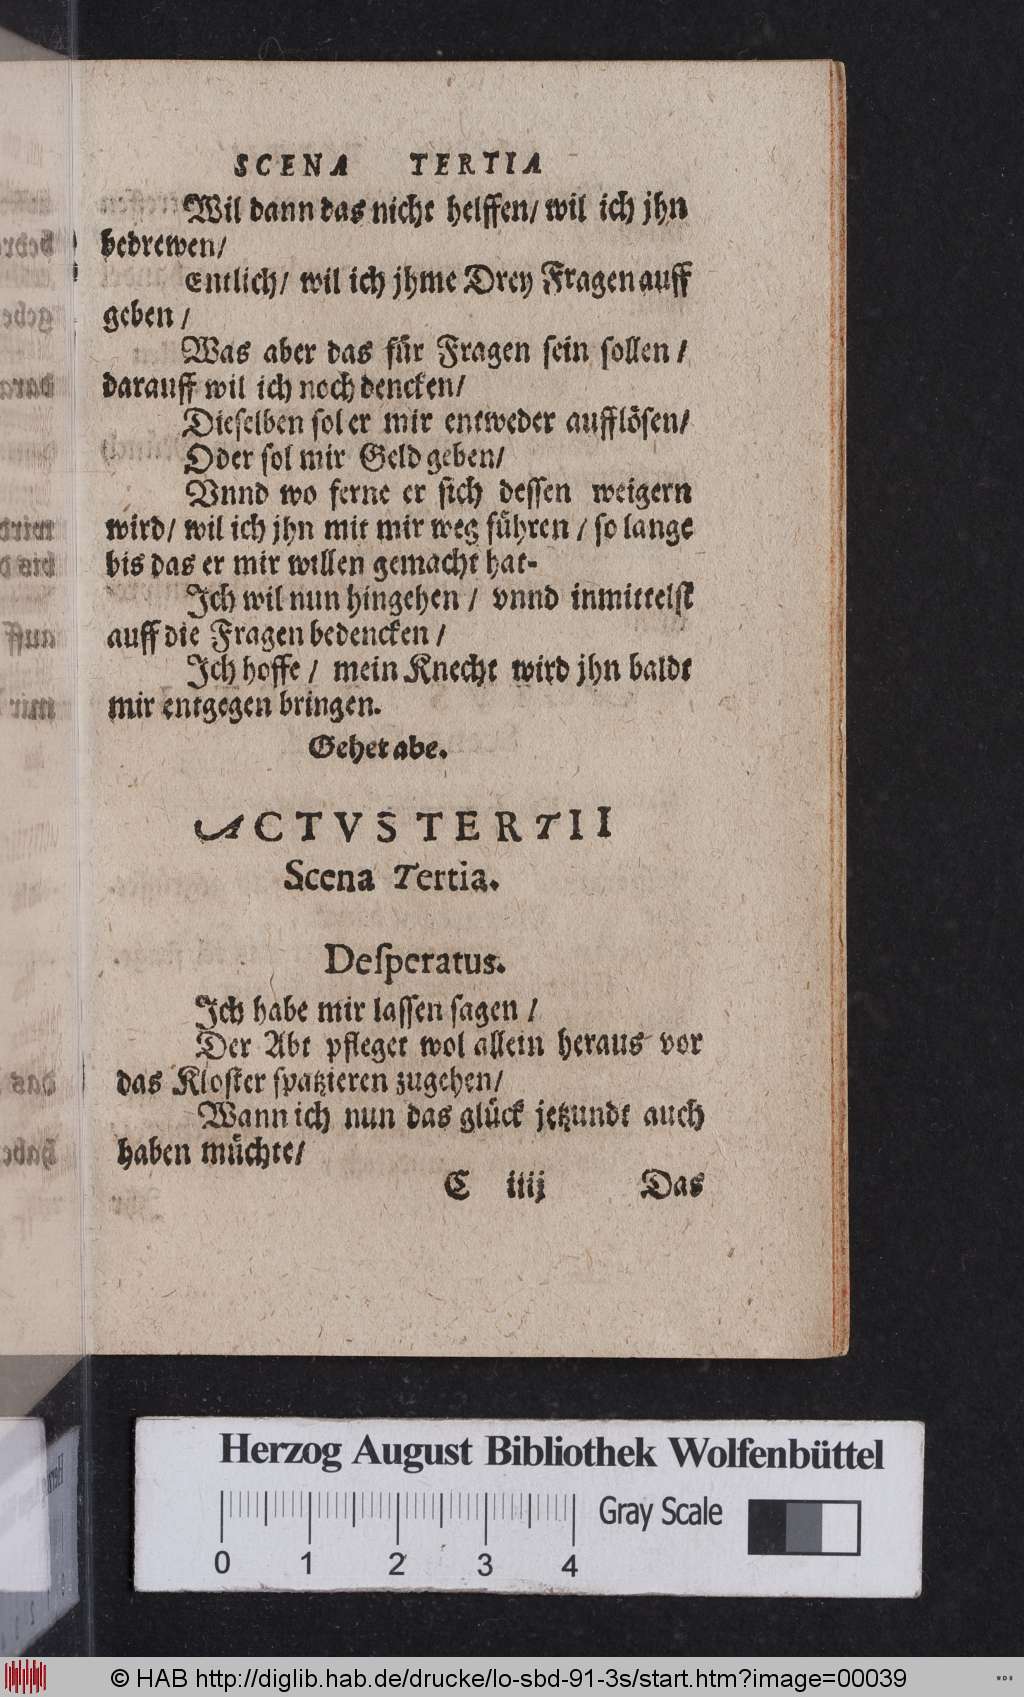 SCENA TERTIA
Wil dann das nicht helffen/ wil ich jhn
bedrewen/
Entlich/ wil ich jhme Drey Fragen auff
geben /
Was aber das für Fragen sein sollen /
darauff wil ich noch dencken/
Dieselben sol er mir entweder aufflösen/
Oder sol mir Geld geben/
Vnnd wo ferne er sich dessen weigern
wird/ wil ich jhn mit mir weg führen / so lange
bis das er mir willen gemacht hat-
Ich wil nun hingehen / vnnd inmittelst
auff die Fragen bedencken /
Ich hoffe / mein Knecht wird jhn baldt
mir entgegen bringen.
Gehet abe.
ACTVS TERTII
Scena Tertia.
Deſperatus.
Ich habe mir lassen sagen /
Der Abt pfleget wol allein heraus vor
das Kloster spatzieren zugehen/
Wann ich nun das glück jetzundt auch
haben müchte/
C iiij Das
Herzog August Bibliothek Wolfenbüttel
Gray Scale
0 1 2 3 4
© HAB http://diglib.hab.de/drucke/lo-sbd-91-3s/start.htm?image=00039